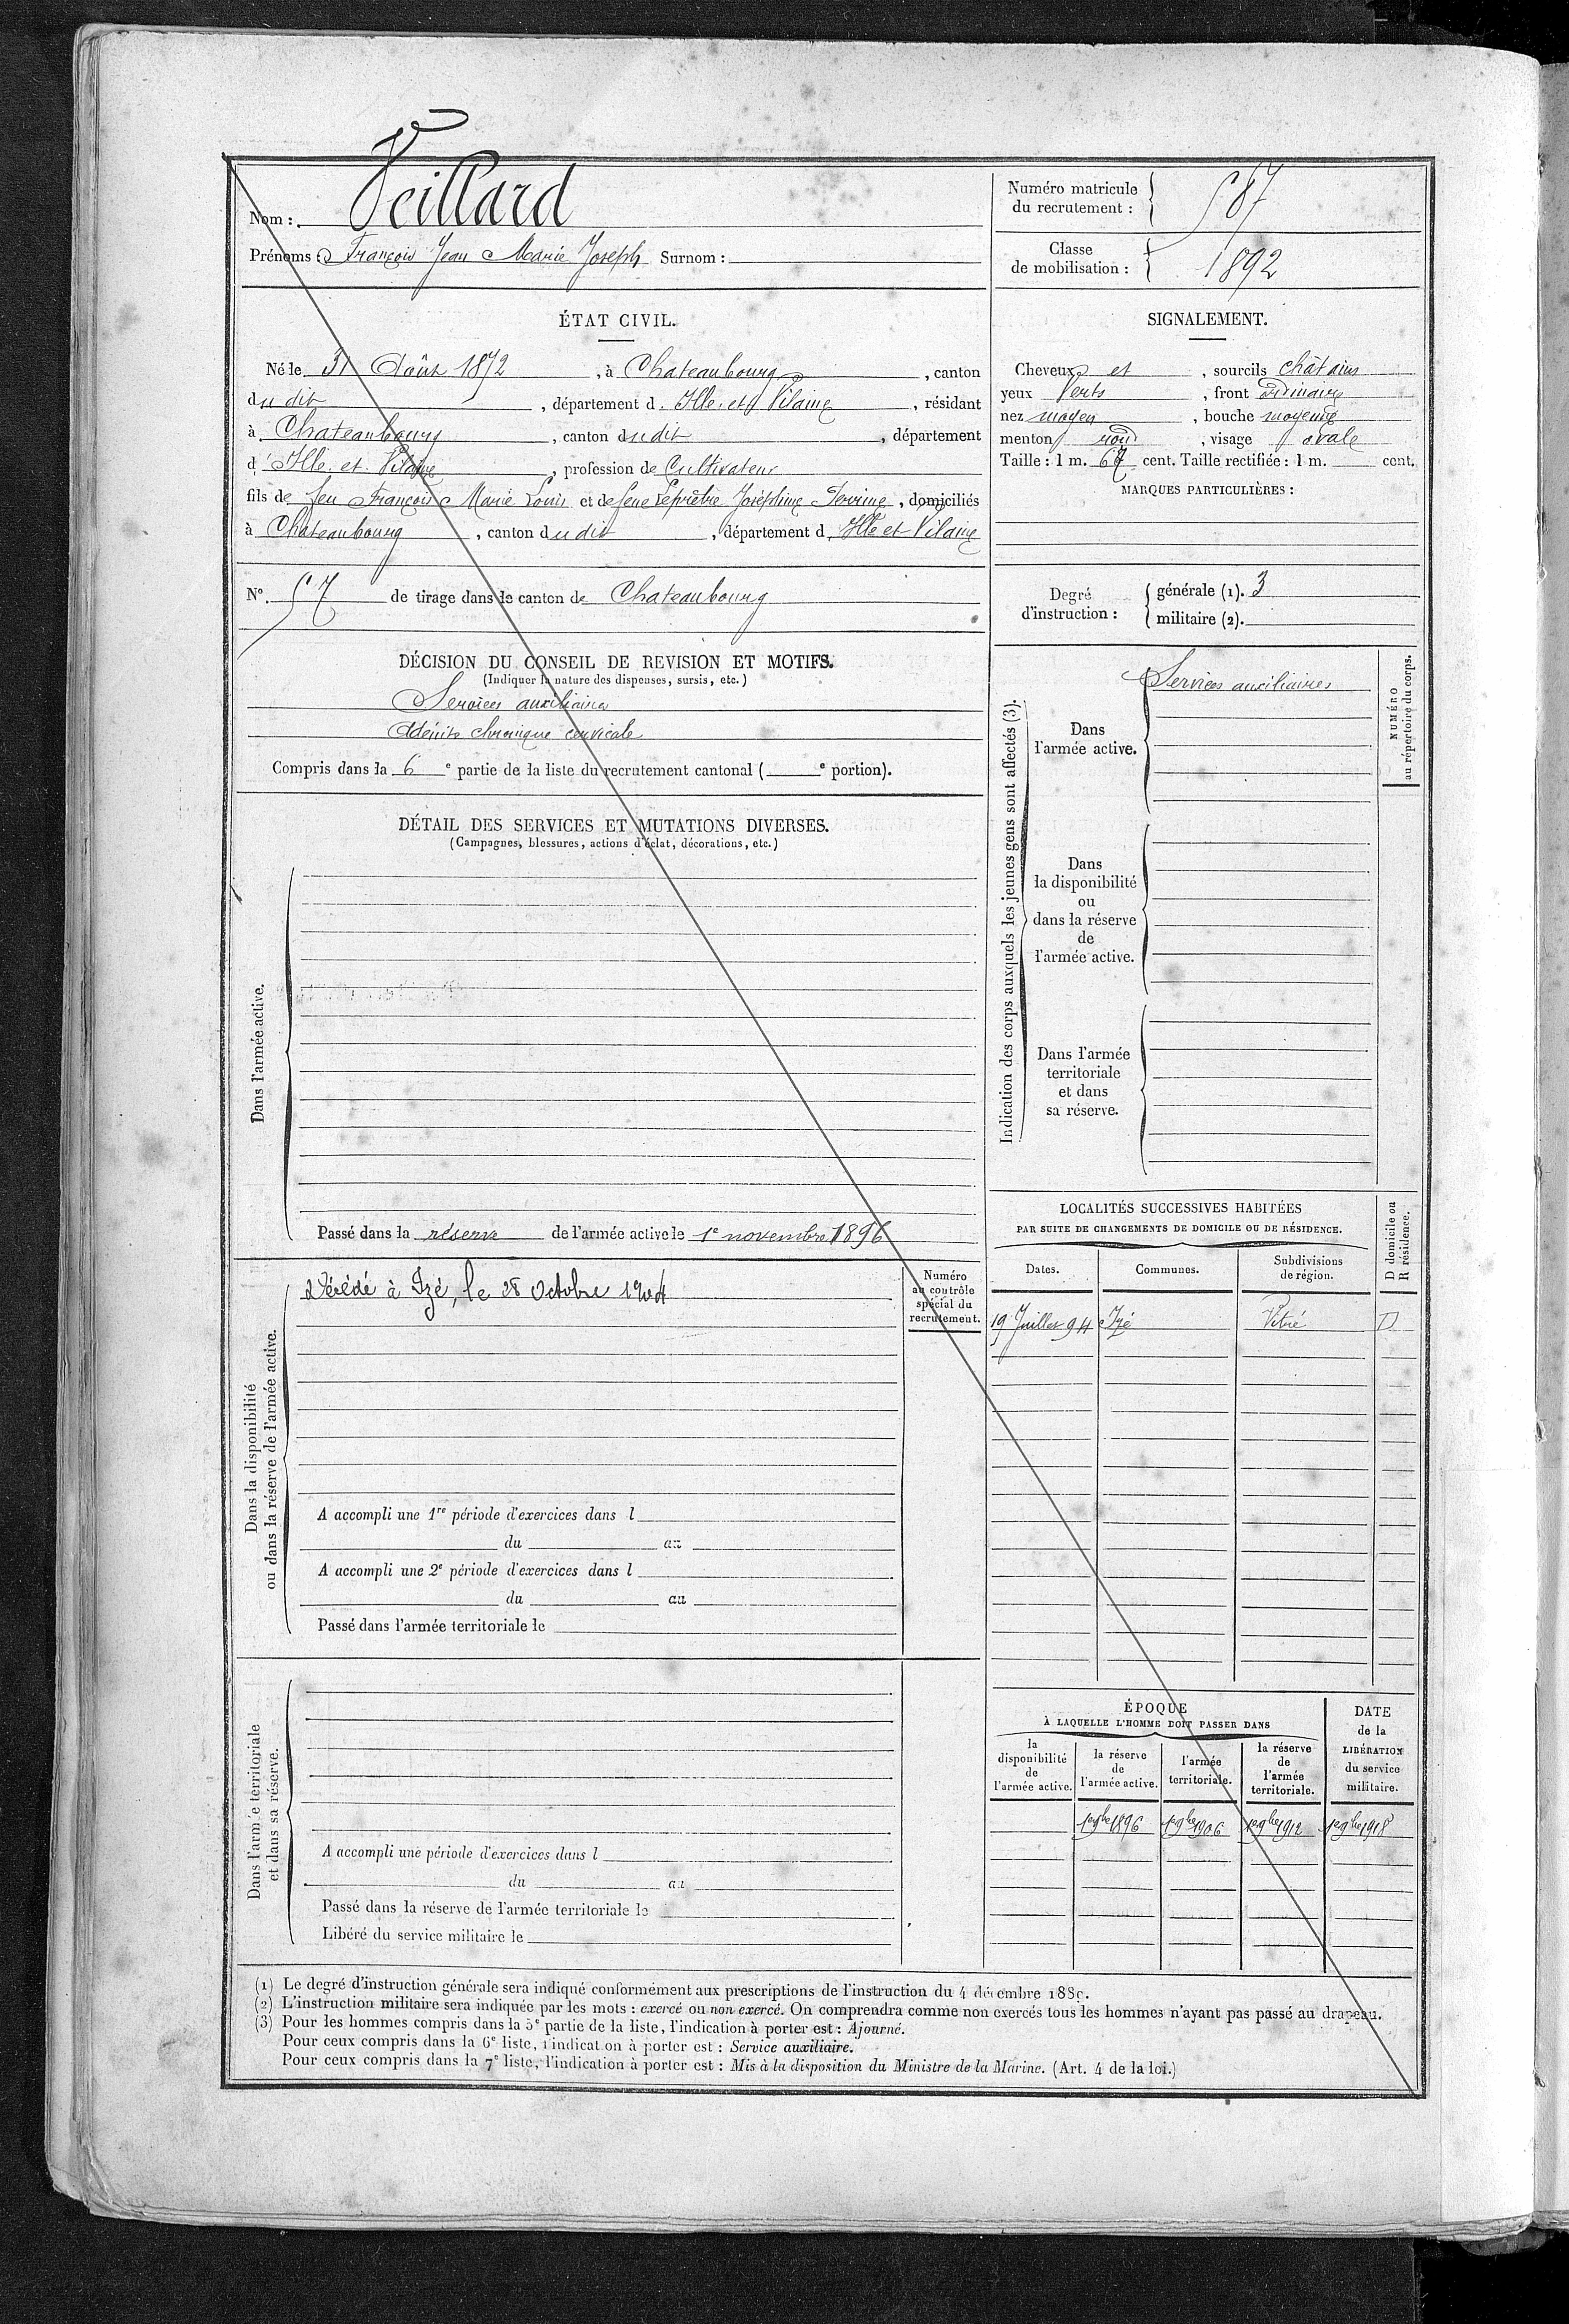 Nom : Veillard
Prénoms : François Jean Marie Joseph Surnom :
Numéro matricule du recrutement : 587
Classe de mobilisation : 1892
ÉTAT CIVIL.
Né le 31 Août 1872, à Chateaubourg, canton
du dit, département d'Ille et Vilaine, résidant
à Chateaubourg, canton du dit, département
d'Ille et Vilaine, profession de Cultivateur
fils de feu François Marie Louis et de feue Leprêtre Joséphine Perrine, domiciliés
à Chateaubourg, canton du dit, département d'Ille et Vilaine
N° 57 de tirage dans le canton de Chateaubourg
SIGNALEMENT.
Cheveux et, sourcils châtains
yeux Verts, front ordinaire
nez moyen, bouche moyenne
menton rond, visage ovale
Taille : 1 m. 67 cent. Taille rectifiée : 1 m. cent.
MARQUES PARTICULIÈRES :
Degré d'instruction :
générale (1). 3
militaire (2).
DÉCISION DU CONSEIL DE REVISION ET MOTIFS.
(Indiquer la nature des dispenses, sursis, etc.)
Services auxiliaires
Adénite chronique cervicale
Compris dans la 6e partie de la liste du recrutement cantonal ( e portion).
DÉTAIL DES SERVICES ET MUTATIONS DIVERSES.
(Campagnes, blessures, actions d'éclat, décorations, etc.)
Dans l'armée active.
Passé dans la réserve de l'armée active le 1e novembre 1896
Indication des corps auxquels les jeunes gens sont affectés (3).
Dans l'armée active.
Services auxiliaires
NUMÉRO au répertoire du corps.
Dans la disponibilité ou dans la réserve de l'armée active.
Dans l'armée territoriale et dans sa réserve.
Dans la disponibilité ou dans la réserve de l'armée active.
Numéro au contrôle spécial du recrutement.
Décédé à Izé, le 28 Octobre 1904
A accompli une 1re période d'exercices dans l
du au
A accompli une 2e période d'exercices dans l
du au
Passé dans l'armée territoriale le
LOCALITÉS SUCCESSIVES HABITÉES
PAR SUITE DE CHANGEMENTS DE DOMICILE OU DE RÉSIDENCE.
D domicile ou R résidence.
Dates. Communes. Subdivisions de région.
19 Juillet 94 Izé Vitré D
Dans l'armée territoriale et dans sa réserve.
A accompli une période d'exercices dans l
du au
Passé dans la réserve de l'armée territoriale le
Libéré du service militaire le
ÉPOQUE
À LAQUELLE L'HOMME DOIT PASSER DANS
la disponibilité de l'armée active.
la réserve de l'armée active.
l'armée territoriale.
la réserve de l'armée territoriale.
DATE de la LIBÉRATION du service militaire.
1er 9bre 1896 1er 9bre 1906 1er 9bre 1912 1er 9bre 1918
(1) Le degré d'instruction générale sera indiqué conformément aux prescriptions de l'instruction du 4 décembre 1889.
(2) L'instruction militaire sera indiquée par les mots : exercé ou non exercé. On comprendra comme non exercés tous les hommes n'ayant pas passé au drapeau.
(3) Pour les hommes compris dans la 5e partie de la liste, l'indication à porter est : Ajourné.
Pour ceux compris dans la 6e liste, l'indication à porter est : Service auxiliaire.
Pour ceux compris dans la 7e liste, l'indication à porter est : Mis à la disposition du Ministre de la Marine. (Art. 4 de la loi.)